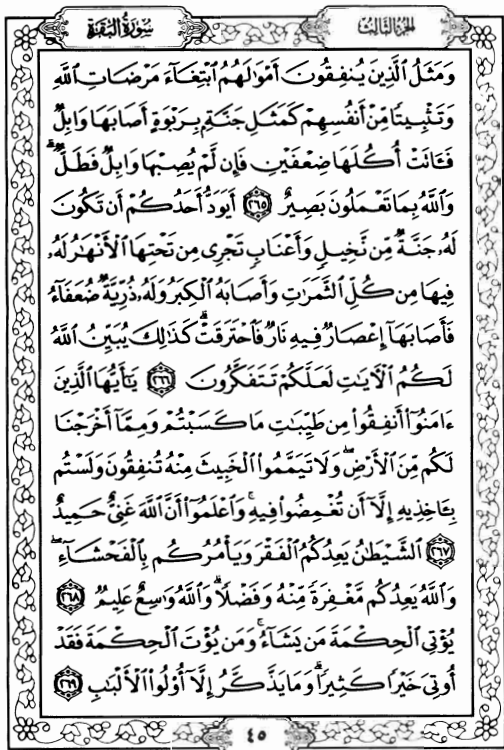 سُورَةُ البَقَرَةِ
الجزء الثالث
وَمَثَلُ ٱلَّذِينَ يُنفِقُونَ أَمْوَٰلَهُمُ ٱبْتِغَآءَ مَرْضَاتِ ٱللَّهِ
وَتَثْبِيتًا مِّنْ أَنفُسِهِمْ كَمَثَلِ جَنَّةٍۭ بِرَبْوَةٍ أَصَابَهَا وَابِلٌ
فَـَٔاتَتْ أُكُلَهَا ضِعْفَيْنِ فَإِن لَّمْ يُصِبْهَا وَابِلٌ فَطَلٌّ ۗ
وَٱللَّهُ بِمَا تَعْمَلُونَ بَصِيرٌ ٢٦٥ أَيَوَدُّ أَحَدُكُمْ أَن تَكُونَ
لَهُۥ جَنَّةٌ مِّن نَّخِيلٍ وَأَعْنَابٍ تَجْرِى مِن تَحْتِهَا ٱلْأَنْهَٰرُ لَهُۥ
فِيهَا مِن كُلِّ ٱلثَّمَرَٰتِ وَأَصَابَهُ ٱلْكِبَرُ وَلَهُۥ ذُرِّيَّةٌ ضُعَفَآءُ
فَأَصَابَهَآ إِعْصَارٌ فِيهِ نَارٌ فَٱحْتَرَقَتْ ۗ كَذَٰلِكَ يُبَيِّنُ ٱللَّهُ
لَكُمُ ٱلْـَٔايَٰتِ لَعَلَّكُمْ تَتَفَكَّرُونَ ٢٦٦ يَٰٓأَيُّهَا ٱلَّذِينَ
ءَامَنُوٓا۟ أَنفِقُوا۟ مِن طَيِّبَٰتِ مَا كَسَبْتُمْ وَمِمَّآ أَخْرَجْنَا
لَكُم مِّنَ ٱلْأَرْضِ ۖ وَلَا تَيَمَّمُوا۟ ٱلْخَبِيثَ مِنْهُ تُنفِقُونَ وَلَسْتُم
بِـَٔاخِذِيهِ إِلَّآ أَن تُغْمِضُوا۟ فِيهِ ۚ وَٱعْلَمُوٓا۟ أَنَّ ٱللَّهَ غَنِىٌّ حَمِيدٌ
٢٦٧ ٱلشَّيْطَٰنُ يَعِدُكُمُ ٱلْفَقْرَ وَيَأْمُرُكُم بِٱلْفَحْشَآءِ ۖ
وَٱللَّهُ يَعِدُكُم مَّغْفِرَةً مِّنْهُ وَفَضْلًا ۗ وَٱللَّهُ وَٰسِعٌ عَلِيمٌ ٢٦٨
يُؤْتِى ٱلْحِكْمَةَ مَن يَشَآءُ ۚ وَمَن يُؤْتَ ٱلْحِكْمَةَ فَقَدْ
أُوتِىَ خَيْرًا كَثِيرًا ۗ وَمَا يَذَّكَّرُ إِلَّآ أُو۟لُوا۟ ٱلْأَلْبَٰبِ ٢٦٩
٤٥